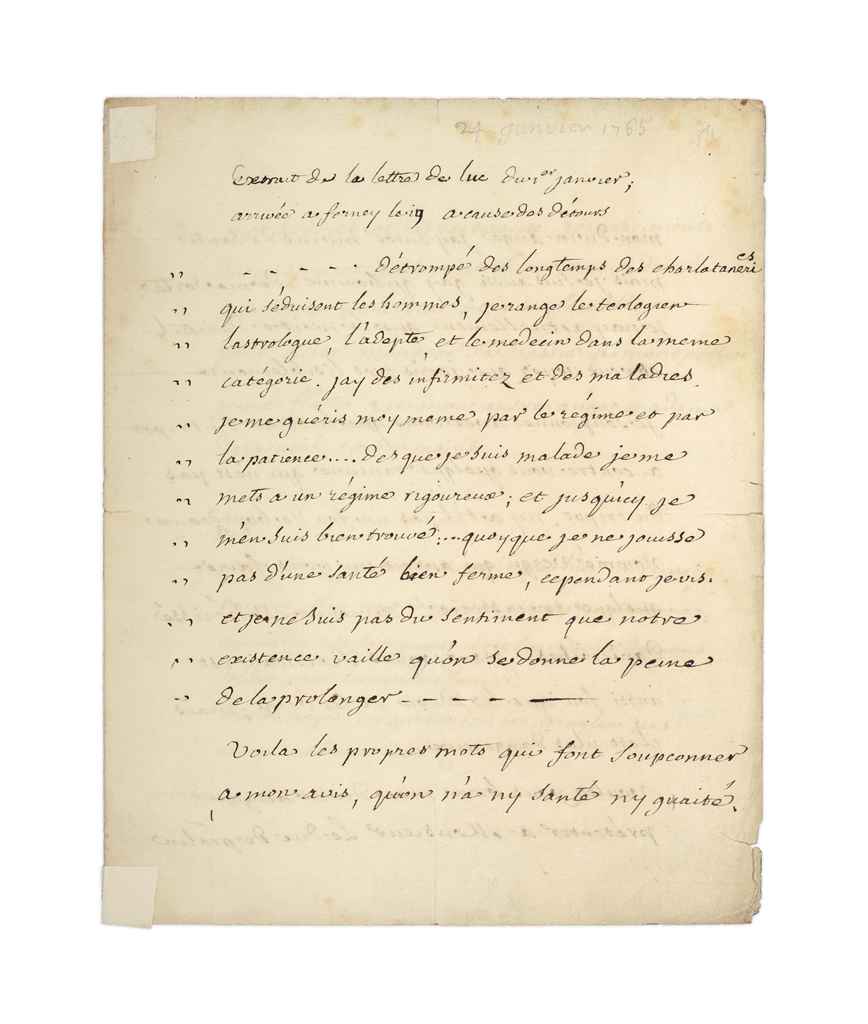 24 janvier 1765
Extrait de la lettre de luc du 1er janvier ;
arrivée a ferney le 19 a cause des détours
,, - - - - - détrompé des longtemps des charlataneries
,, qui séduisent les hommes, je range le teologien
,, lastrologue, l'adepte, et le medecin dans la meme
,, catégorie. jay des infirmitez et des maladies.
,, je me guéris moy meme par le régime et par
,, la patience.... des que je suis malade je me
,, mets a un régime rigoureux ; et jusqu'icy je
,, m'en suis bien trouvé :...quoyque je ne jouisse
,, pas d'une santé bien ferme, cependant je vis.
,, et je ne suis pas du sentiment que notre
,, existence vaille qu'on se donne la peine
,, de la prolonger - - - - - —
Voila les propres mots qui font soupconner
a mon avis, qu'on n'a ny santé ny guaité.